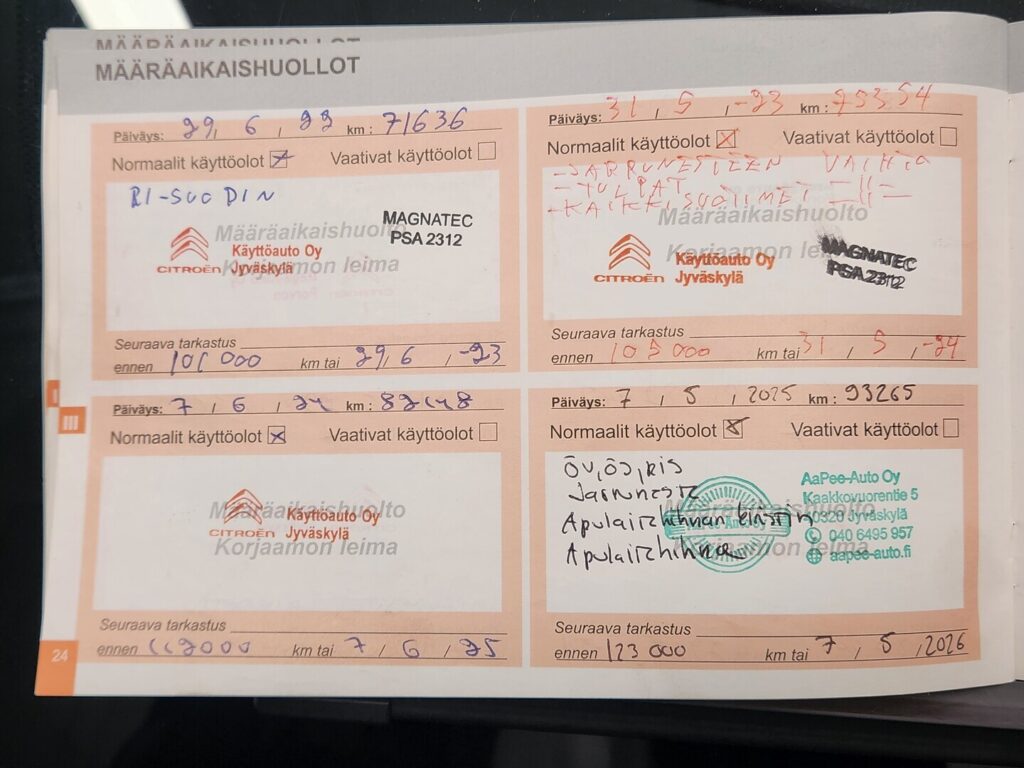 MÄÄRÄAIKAISHUOLLOT
MÄÄRÄAIKAISHUOLLOT
Päiväys: 29, 6, 22 km: 71636
Normaalit käyttöolot Vaativat käyttöolot
RI-SUODIN
MAGNATEC
PSA 2312
Määräaikaishuolto
Korjaamon leima
CITROËN
Käyttöauto Oy
Jyväskylä
Seuraava tarkastus
ennen 101 000 km tai 29, 6, -23
Päiväys: 31, 5, -23 km:
Normaalit käyttöolot X Vaativat käyttöolot
- JARRUNESTEEN VAIHTO
- TULPAT -||-
- KAIKKI SUOTIMET -||-
Määräaikaishuolto
Korjaamon leima
CITROËN
Käyttöauto Oy
Jyväskylä
MAGNATEC
PSA 2312
Seuraava tarkastus
ennen 105 000 km tai 31, 5, -24
Päiväys: 7, 6, 24 km:
Normaalit käyttöolot X Vaativat käyttöolot
Määräaikaishuolto
Korjaamon leima
CITROËN
Käyttöauto Oy
Jyväskylä
Seuraava tarkastus
ennen 112000 km tai 7, 6, 25
Päiväys: 7, 5, 2025 km: 93265
Normaalit käyttöolot X Vaativat käyttöolot
ÖV, ÖS, RIS
Jarruneste
Apulaitehihnan kiristin
Apulaitehihna
Määräaikaishuolto
Korjaamon leima
AaPee-Auto Oy
Kaakkovuorentie 5
40320 Jyväskylä
040 6495 957
aapee-auto.fi
Seuraava tarkastus
ennen 123 000 km tai 7, 5, 2026
I
III
24